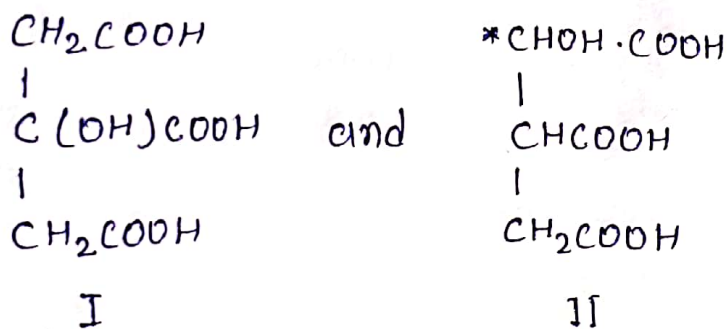 CH₂COOH *CHOH·COOH
| |
C(OH)COOH and CHCOOH
| |
CH₂COOH CH₂COOH
I II